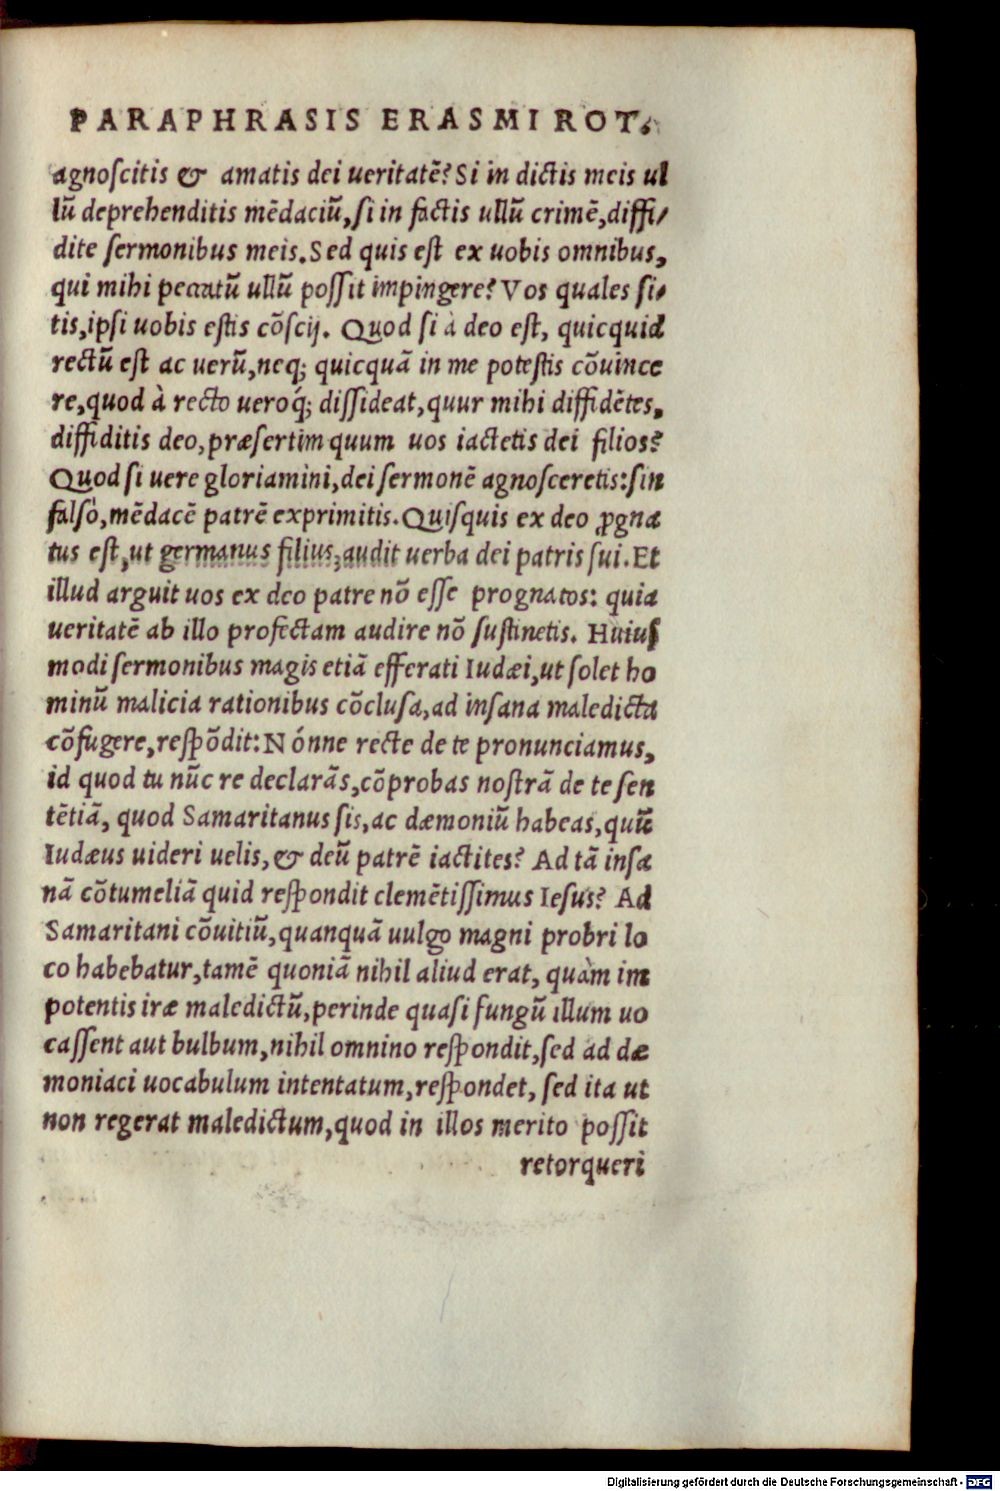 PARAPHRASIS ERASMI ROT.
agnoſcitis & amatis dei ueritatē? Si in dictis meis ul
lū deprehenditis mēdaciū, ſi in factis ullū crimē, diffi/
dite ſermonibus meis. Sed quis eſt ex uobis omnibus,
qui mihi peccatū ullū poſſit impingere? Vos quales ſi/
tis, ipſi uobis eſtis cōſcij. Quod ſi à deo eſt, quicquid
rectū eſt ac uerū, neq; quicquā in me poteſtis cōuince
re, quod à recto ueroq́; diſſideat, quur mihi diffidētes,
diffiditis deo, præſertim quum uos iactetis dei filios?
Quod ſi uere gloriamini, dei ſermonē agnoſceretis: ſin
falſò, mēdacē patrē exprimitis. Quiſquis ex deo ꝓgna
tus eſt, ut germanus filius, audit uerba dei patris ſui. Et
illud arguit uos ex deo patre nō eſſe prognatos: quia
ueritatē ab illo profectam audire nō ſuſtinetis. Huiuſ
modi ſermonibus magis etiā efferati Iudæi, ut ſolet ho
minū malicia rationibus cōcluſa, ad inſana maledicta
cōfugere, reſpōdit: Nónne recte de te pronunciamus,
id quod tu nūc re declarās, cōprobas noſtrā de te ſen
tētiā, quod Samaritanus ſis, ac dæmoniū habeas, quū
Iudæus uideri uelis, & deū patrē iactites? Ad tā inſa
nā cōtumeliā quid reſpondit clemētiſſimus Ieſus? Ad
Samaritani cōuitiū, quanquā uulgo magni probri lo
co habebatur, tamē quoniā nihil aliud erat, quàm im
potentis iræ maledictū, perinde quaſi fungū illum uo
caſſent aut bulbum, nihil omnino reſpondit, ſed ad dæ
moniaci uocabulum intentatum, reſpondet, ſed ita ut
non regerat maledictum, quod in illos merito poſſit
retorqueri
Digitalisierung gefördert durch die Deutsche Forschungsgemeinschaft - DFG